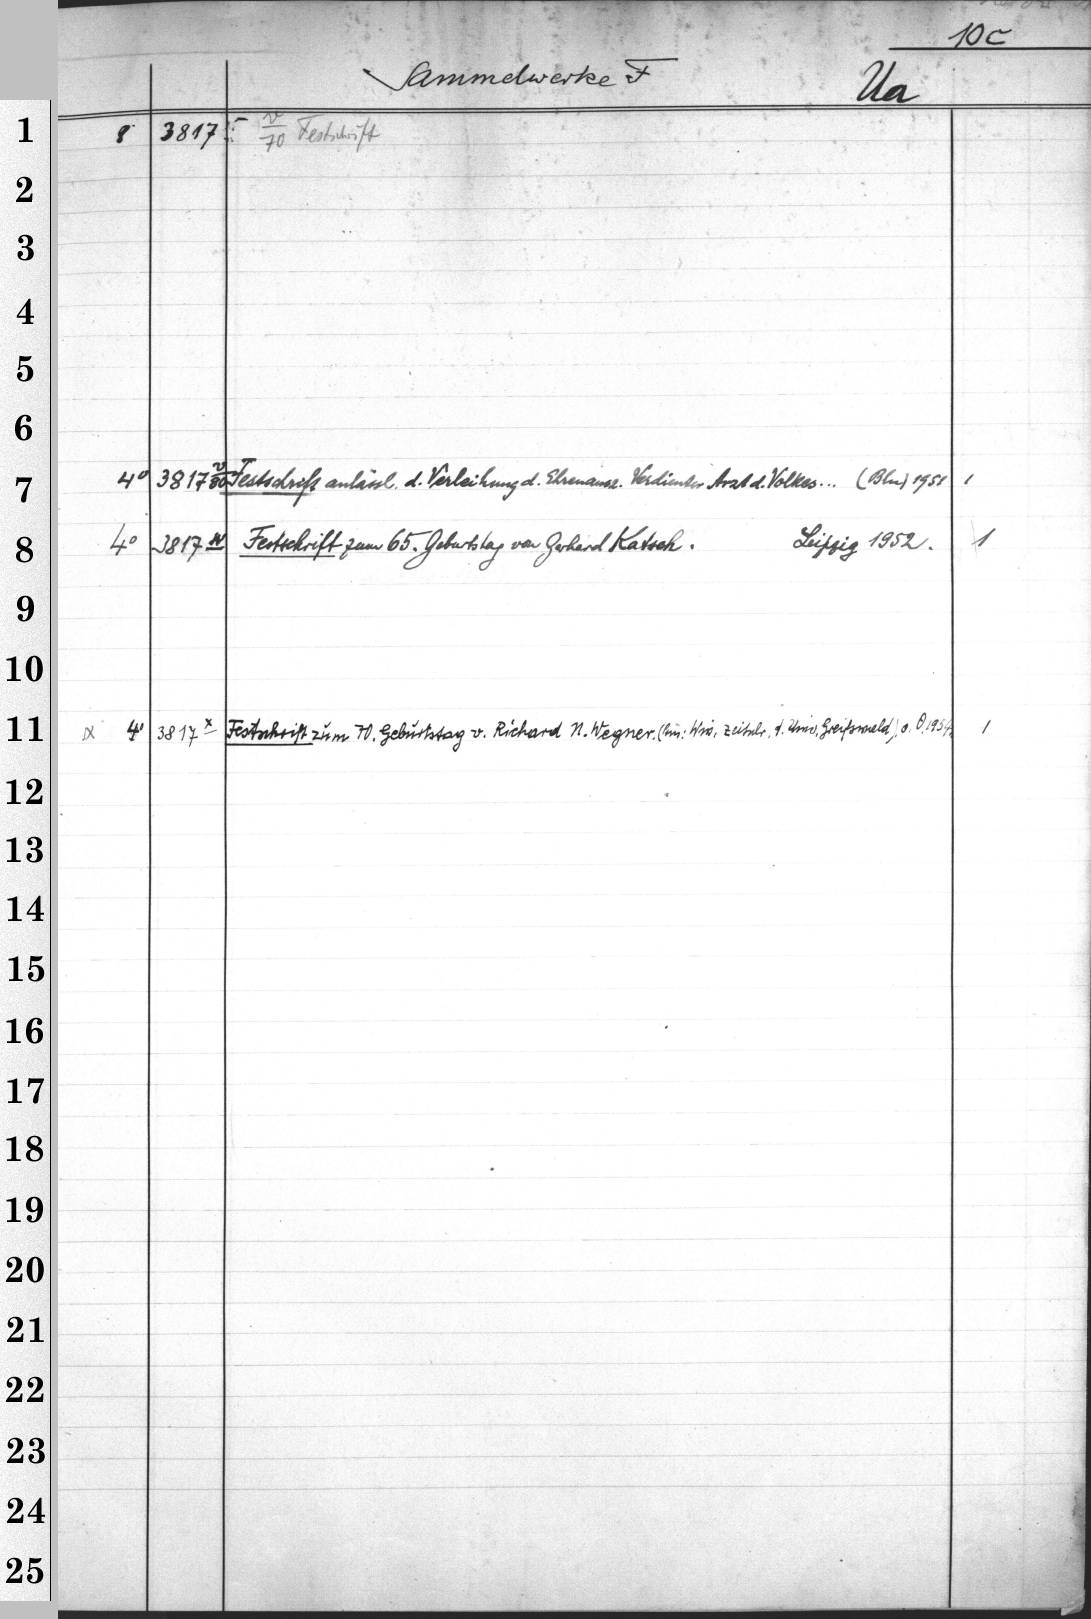 10c
Sammelwerke F
Ua
1 8 3817 v/70 Festschrift
2
3
4
5
6
7 4° 3817 v/80 Festschrift anlässl. d. Verleihung d. Ehrenausz. Verdienter Arzt d. Volkes... (Bln) 1951 1
8 4° 3817 w Festschrift zum 65. Geburtstag von Gerhard Katsch. Leipzig 1952. 1
9
10
11 x 4° 3817 x Festschrift zum 70. Geburtstag v. Richard N. Wegner. (In: Wiss. Zeitschr. d. Univ. Greifswald) o. O. 1954. 1
12
13
14
15
16
17
18
19
20
21
22
23
24
25